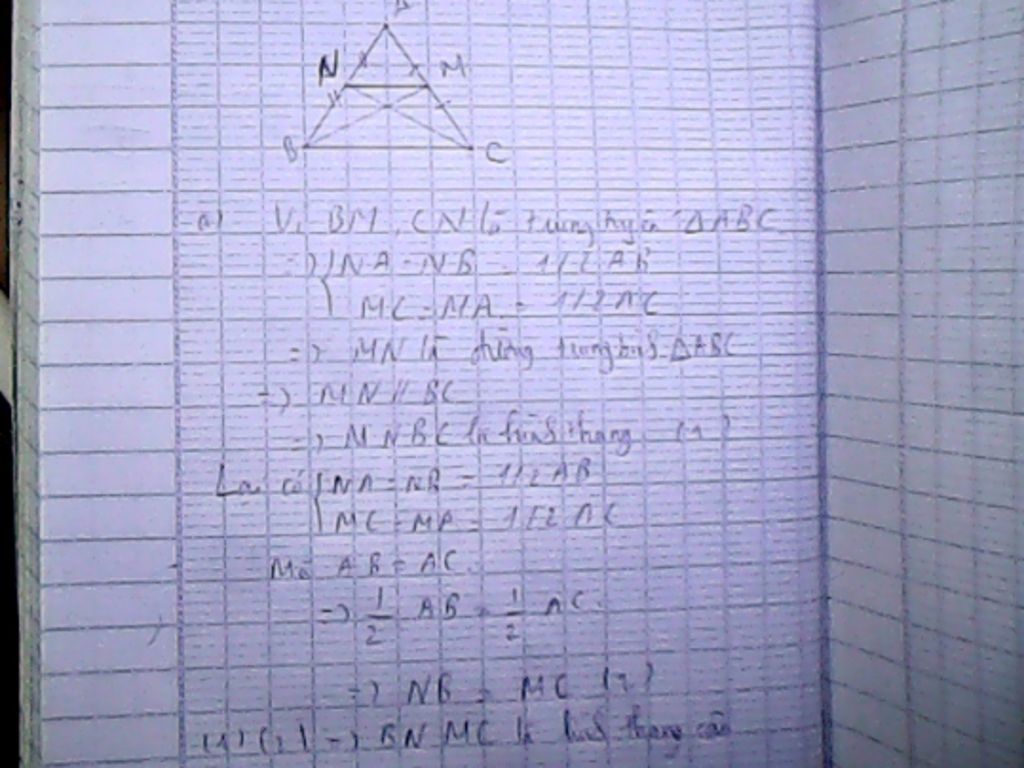 N M
B C
a) Vì BM, CN là trung tuyến ΔABC
=> { NA = NB = 1/2 AB
MC = MA = 1/2 AC
=> MN là đường trung bình ΔABC
=> MN // BC
=> MNBC là hình thang (1)
Lại có { NA = NB = 1/2 AB
MC = MA = 1/2 AC
Mà AB = AC
=> 1/2 AB = 1/2 AC
=> NB = MC (2)
(1) (2) => BNMC là hình thang cân